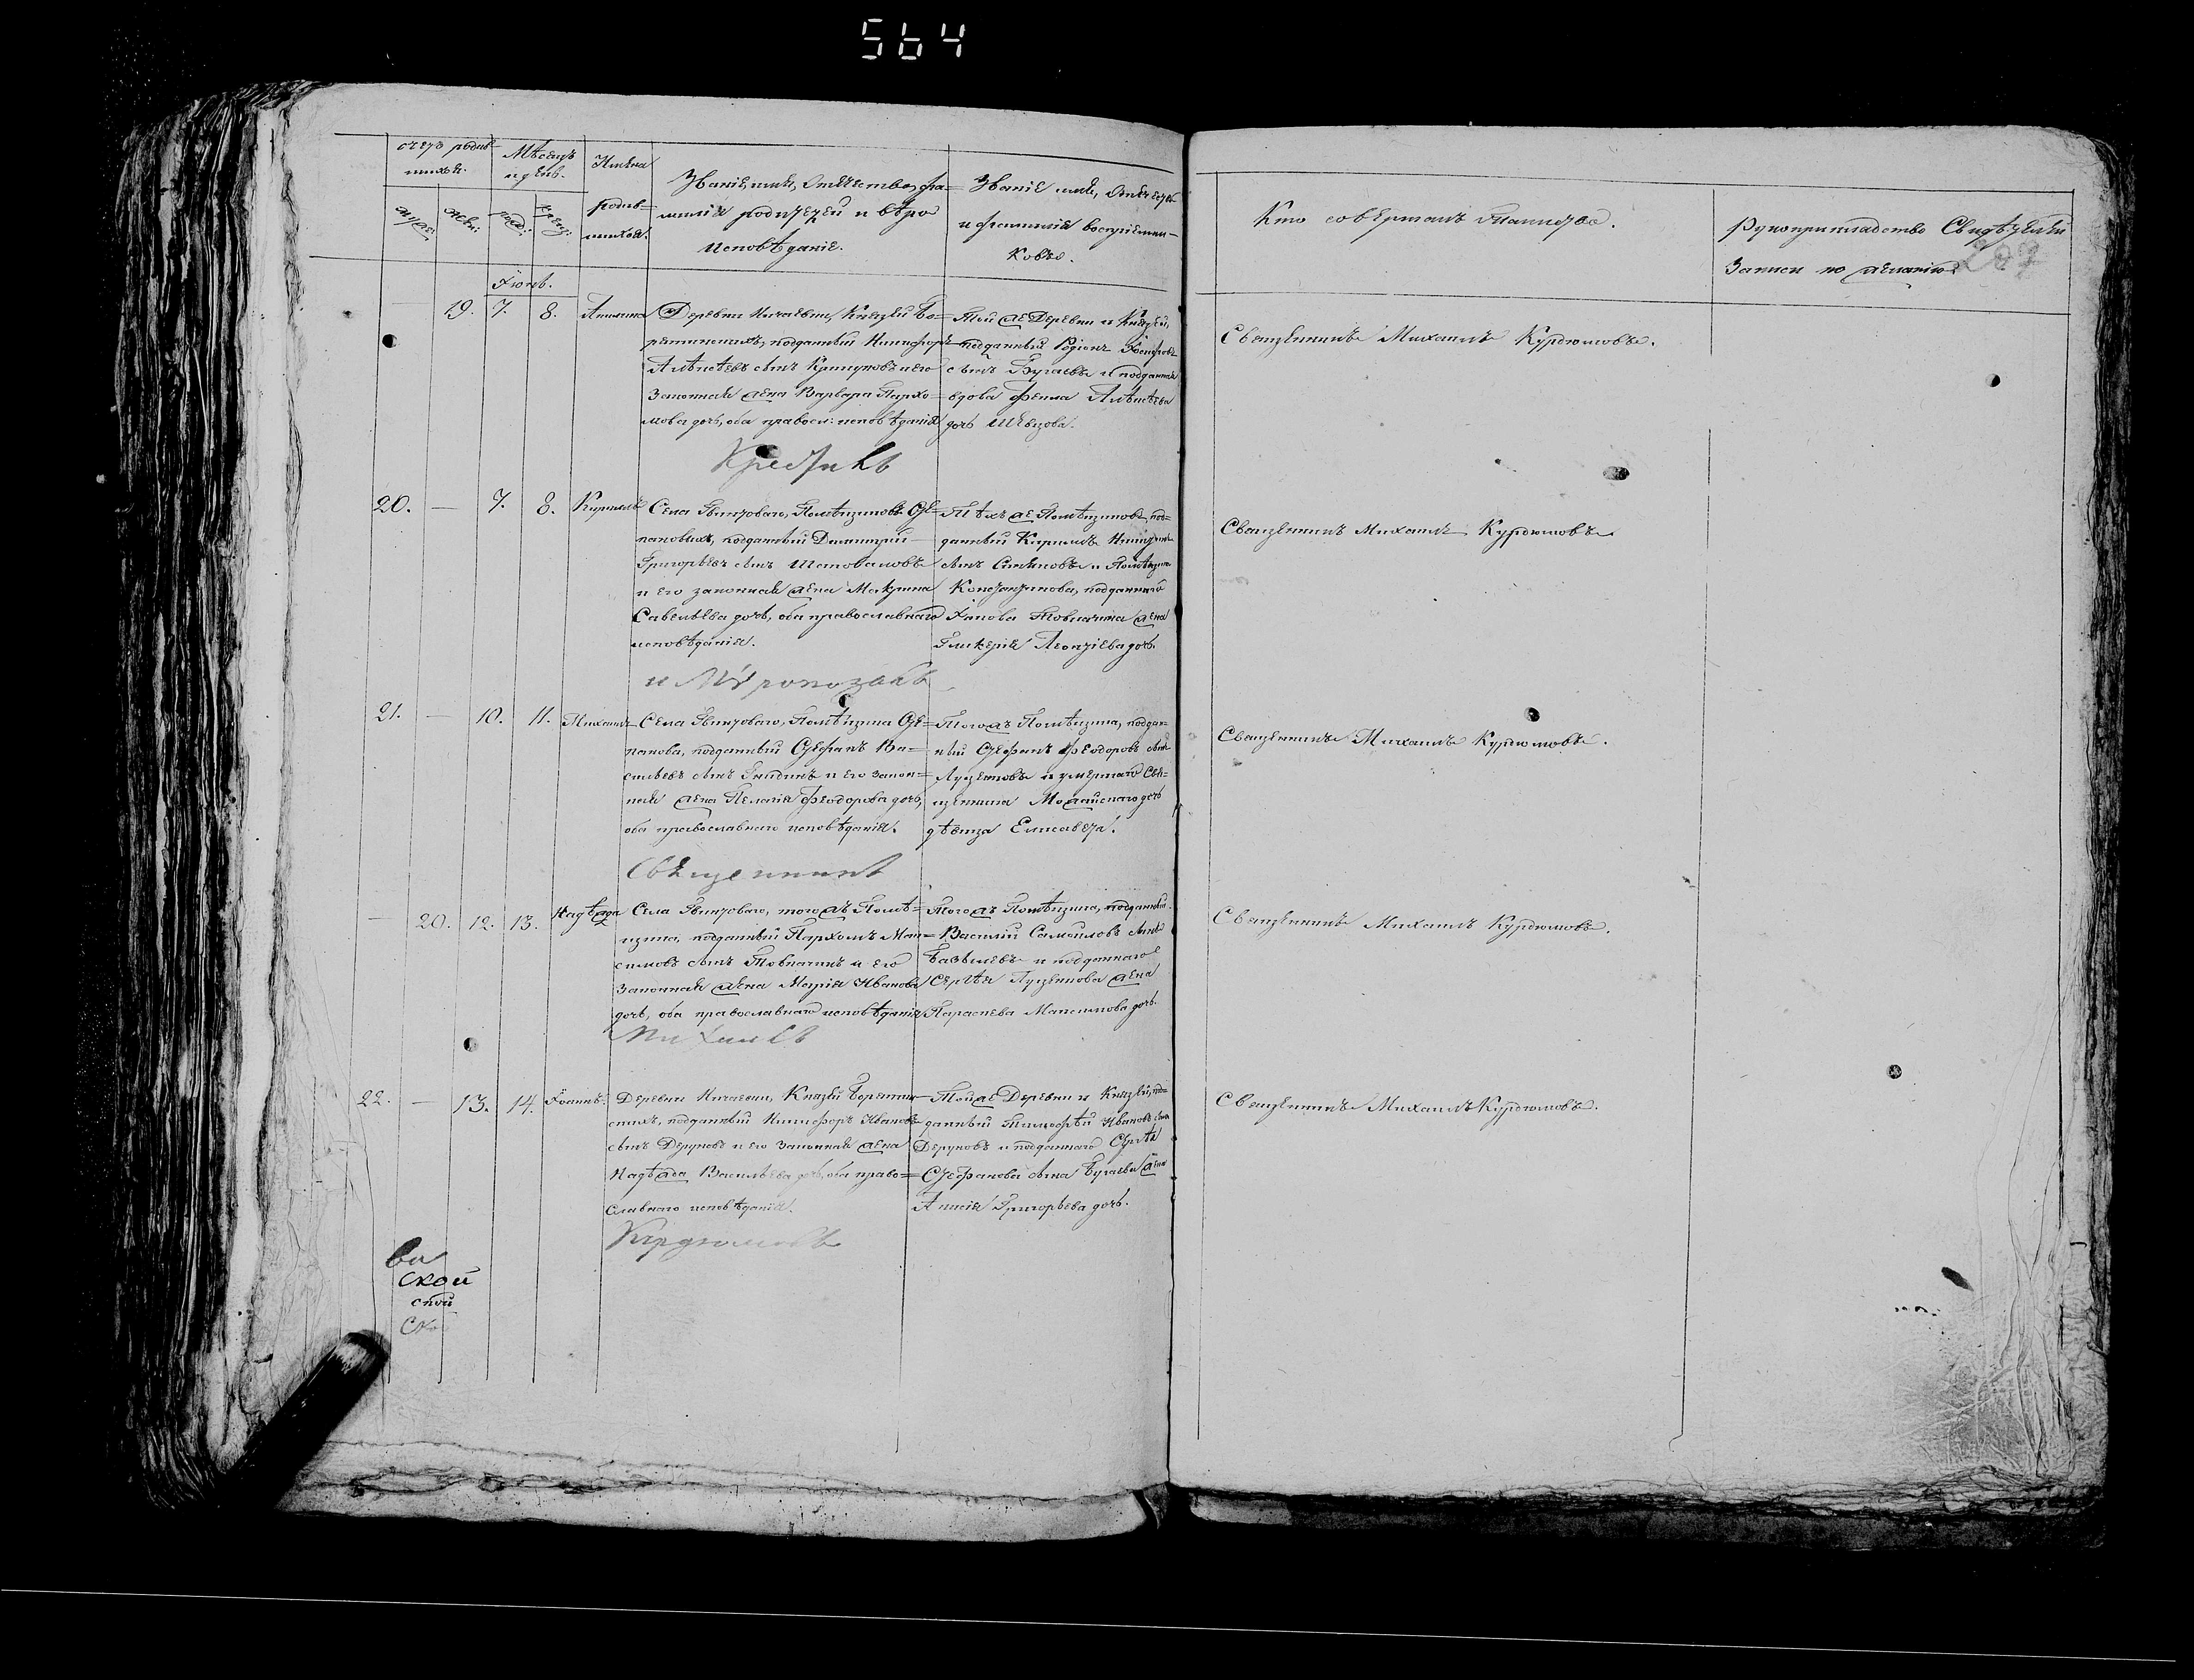 564
счетъ родив-
шихся.
Мѣсяцъ
и день.
Имена
родив-
шихся.
муже:
жен:
рожд:
крещ:
Званіе, имя, Отечество, фа-
милія родителей и вѣро
исповѣданіе.
Званіе имя, Отечество
и фамилія воспріемни-
ковъ.
Кто совершалъ Таинство.
Рукоприкладство Свидѣтелей
Записи по желанію
Іюль.
19. 7. 8.
Деревни Князей Бо-
подданный Никифоръ
Алексѣевъ сынъ и его
Законная жена Варвара Пархо-
мова дочь, оба правосл: исповѣданія
Той же Деревни и Князей,
подданный Родіонъ
сынъ Бугаевъ и подданная
вдова Фекла Алексѣева
дочь Шевцова.
Священникъ Михаилъ Курдюмовъ.
20. — 7. 8. Кириллъ
Села Помѣщиковъ Сте-
пановыхъ, подданный Димитрій
Григорьевъ сынъ Шаповаловъ
и его законная жена
Савельева дочь, оба православнаго
исповѣданія.
Тѣхъ же Помѣщиковъ под-
данный Кириллъ
сынъ и Помѣщика
Константинова, подданнаго
Товкачина жена
Гликерія Леонтіева дочь.
Священникъ Михаилъ Курдюмовъ
21. — 10. 11. Михаилъ
Села Помѣщика Сте-
панова, подданный Стефанъ Ва-
сильевъ сынъ и его закон-
ная жена Пелагія Феодорова дочь,
оба православнаго исповѣданія.
Тогожъ Помѣщика, поддан-
ный Стефанъ Феодоровъ сынъ
Луценковъ и умершаго Свя-
щенника Можайскаго дочь
дѣвица Елисавета.
Священникъ Михаилъ Курдюмовъ.
Священникъ
— 20. 12. 13. Надѣжда
Села тогожъ Помѣ-
щика, подданный Пархомъ Мак-
симовъ сынъ Товкачинъ и его
Законная жена Марія Иванова
дочь, оба православнаго исповѣданія
Тогожъ Помѣщика, подданный
Василій Самойловъ сынъ
и подданнаго
Сергѣя Луценкова жена
Параскева Максимова дочь.
Священникъ Михаилъ Курдюмовъ.
Михаилъ
22. — 13. 14. Іоаннъ.
Деревни Князей Борятин-
скихъ, подданный Никифоръ Ивановъ
сынъ Деруновъ и его Законная жена
Надѣжда Васильева дочь, оба право-
славнаго исповѣданія.
Той же Деревни и Князей, под-
данный Тимофѣй Ивановъ сынъ
Деруновъ и подданнаго
Стефанова сына Бугаева жена
Анисія Григорьева дочь.
Священникъ Михаилъ Курдюмовъ.
Курдюмовъ
ской
ской